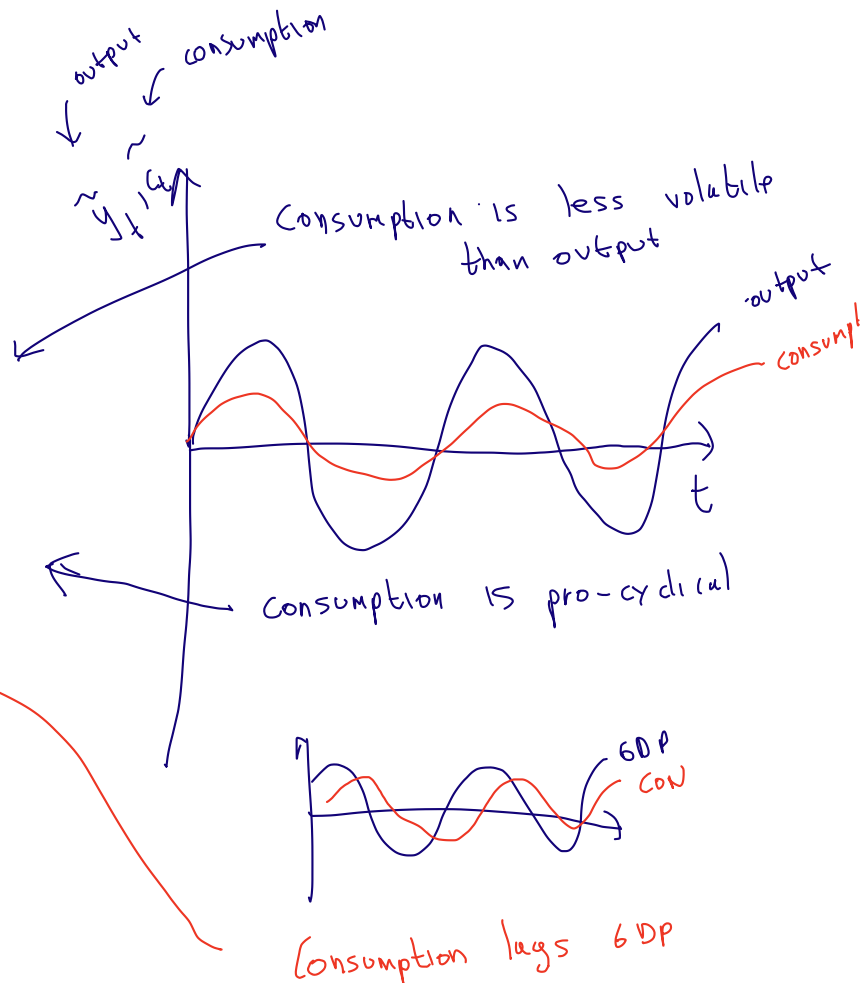 output
consumption
ỹₜ, c̃ₜ
Consumption is less volatile
than output
output
consumpt
t
Consumption is pro-cyclical
GDP
CON
Consumption lags GDP